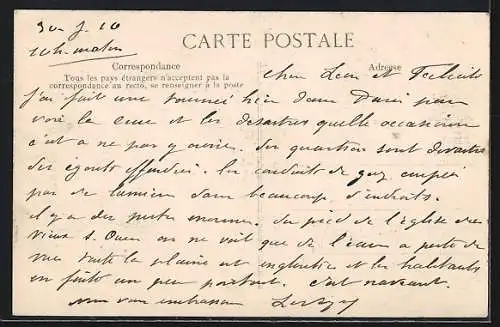 30-J-10
10h. matin
CARTE POSTALE
Correspondance
Adresse
Tous les pays étrangers n'acceptent pas la
correspondance au recto, se renseigner à la poste
Cher Léon et Félicité
J'ai fait une tournée hier dans Paris pour
voir la crue et les désastres quelle occasionne
c'est a ne pas y croire. des quartiers sont dévastés
des égouts effondrés. les conduits de gaz coupés
pas de lumière dans beaucoup d'endroits.
il y a des pertes énormes. du pied de l'église de
vieux S. Ouen on ne voit que de l'eau a perte de
vue toute la plaine est engloutie et les habitants
en fuite un peu partout. c'est navrant.
nous vous embrassons